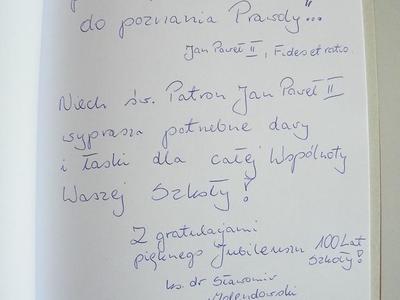 do poznania Prawdy"...
Jan Paweł II, Fides et ratio.
Niech św. Patron Jan Paweł II
wyprasza potrzebne dary
i łaski dla całej Wspólnoty
Waszej Szkoły!
Z gratulacjami
pięknego Jubileuszu 100 Lat
Szkoły!
ks. dr Sławomir